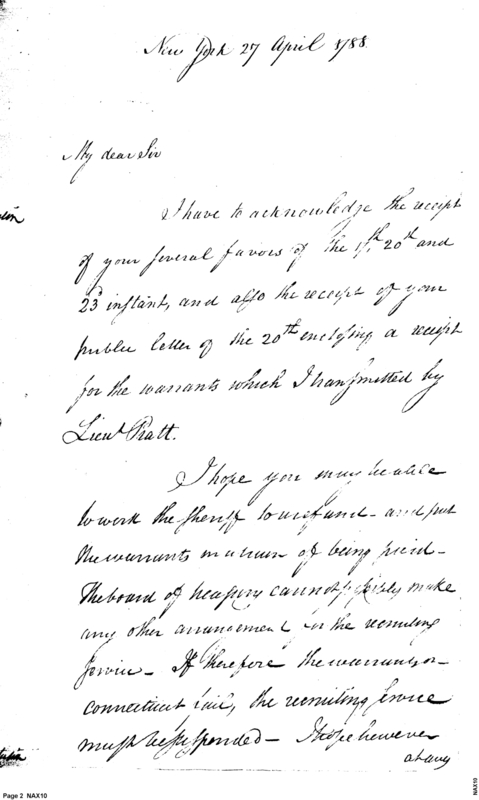 New York 27 April 1788.
My dear Sir
I have to acknowledge the receipt
of your several favors of the 20th and
23d instant, and also the receipt of your
public letter of the 20th enclosing a receipt
for the warrants which I transmitted by
Lieut Pratt.
I hope you may be able
to work the Sheriff to and put
the warrants in a train of being paid -
The board of treasury cannot possibly make
any other arrangement for the recruiting
service - If therefore the warrants on
connecticut fail, the recruiting service
must be suspended - I hope however
Page 2 NAX10
NAX10